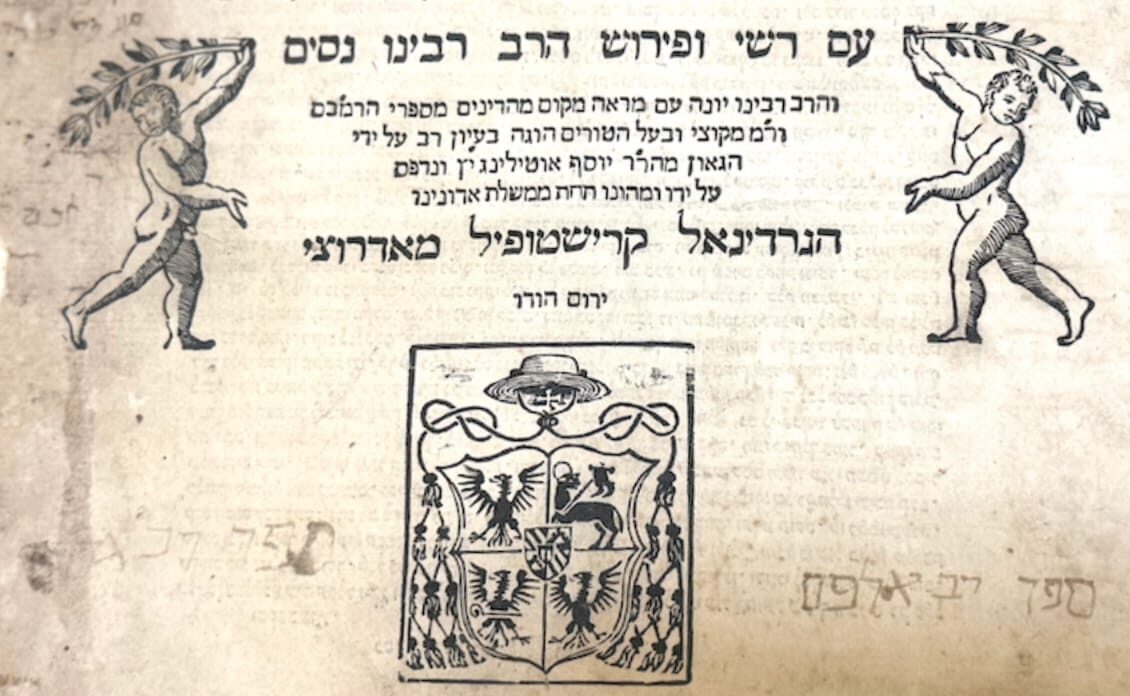 עם רשי ופירוש הרב רבינו נסים
והרב רבינו יונה עם מראה מקום מהדינים מספרי הרמב״ם
ור״מ מקוצי ובעל הטורים הוגה בעיון רב על ידי
הגאון מהר״ר יוסף אוטילינג״ין ונדפס
על ידו ומהונו תחת ממשלת אדונינו
הגרדינאל קרישטופיל מאדרוצי
ירום הודו
ספר רב אלפס